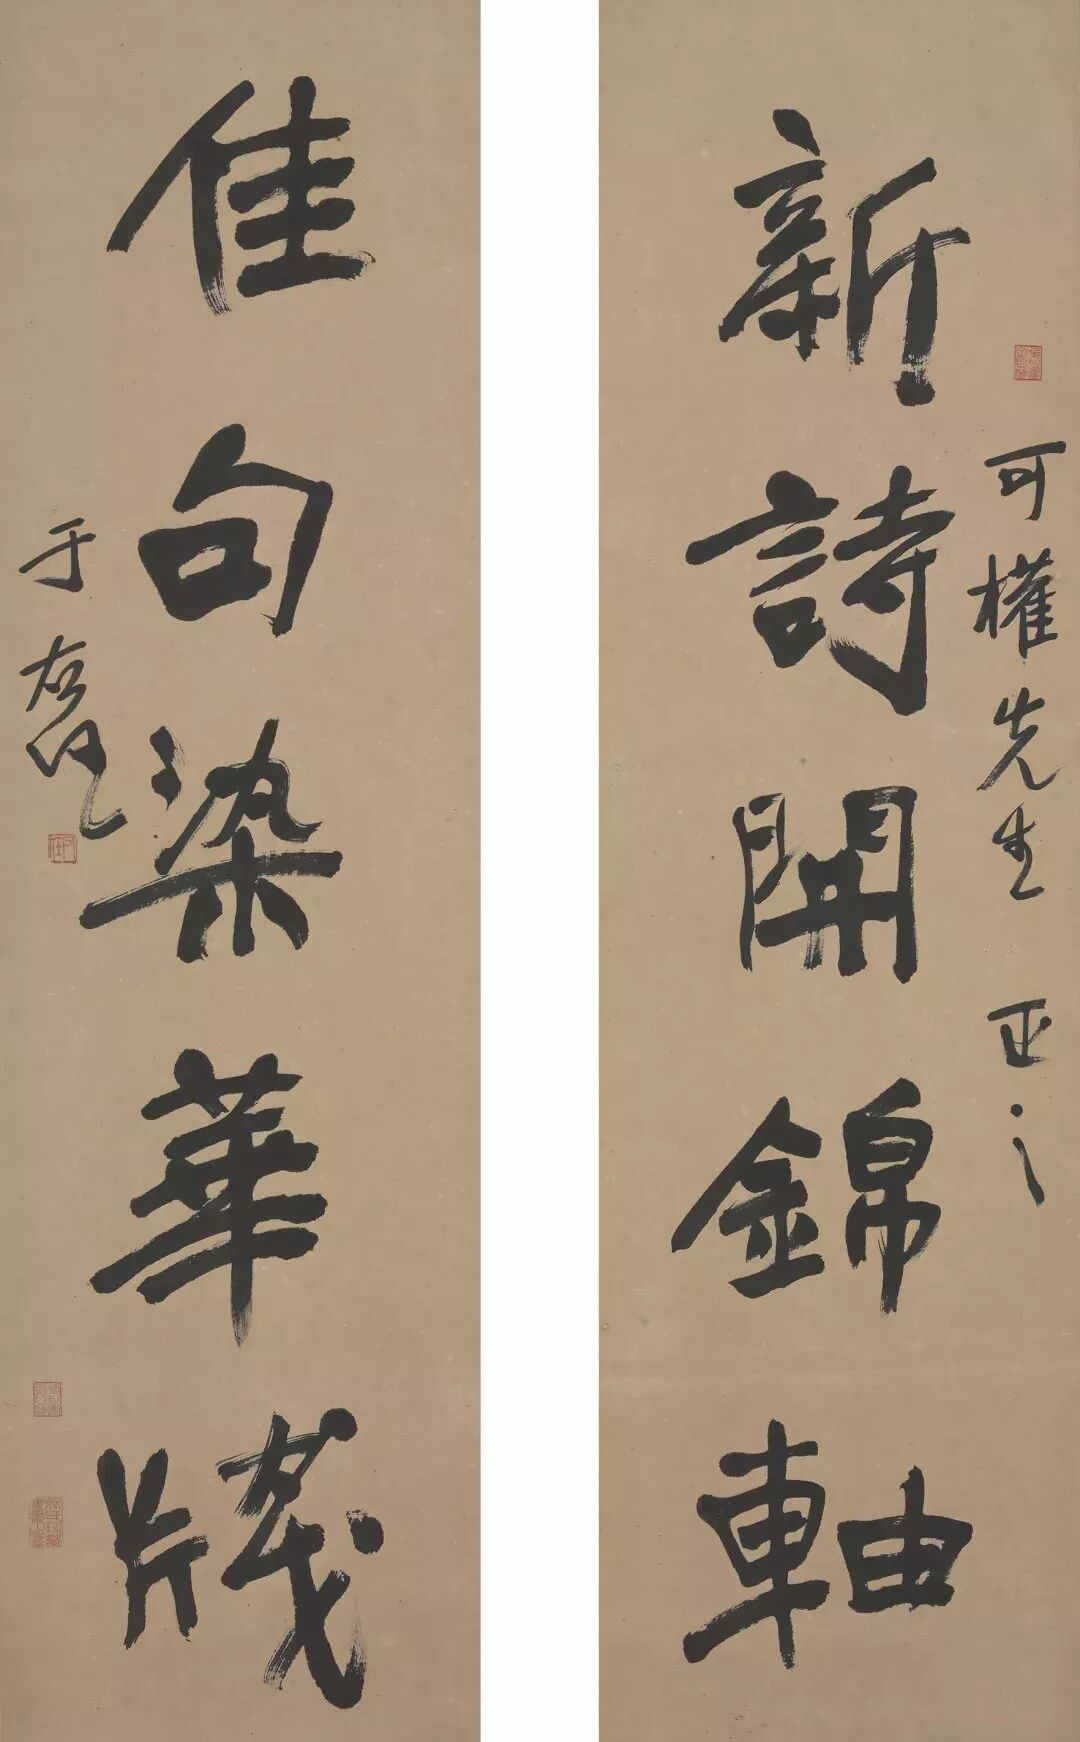 新詩開錦軸
可權先生正之
佳句染華牋
于右任